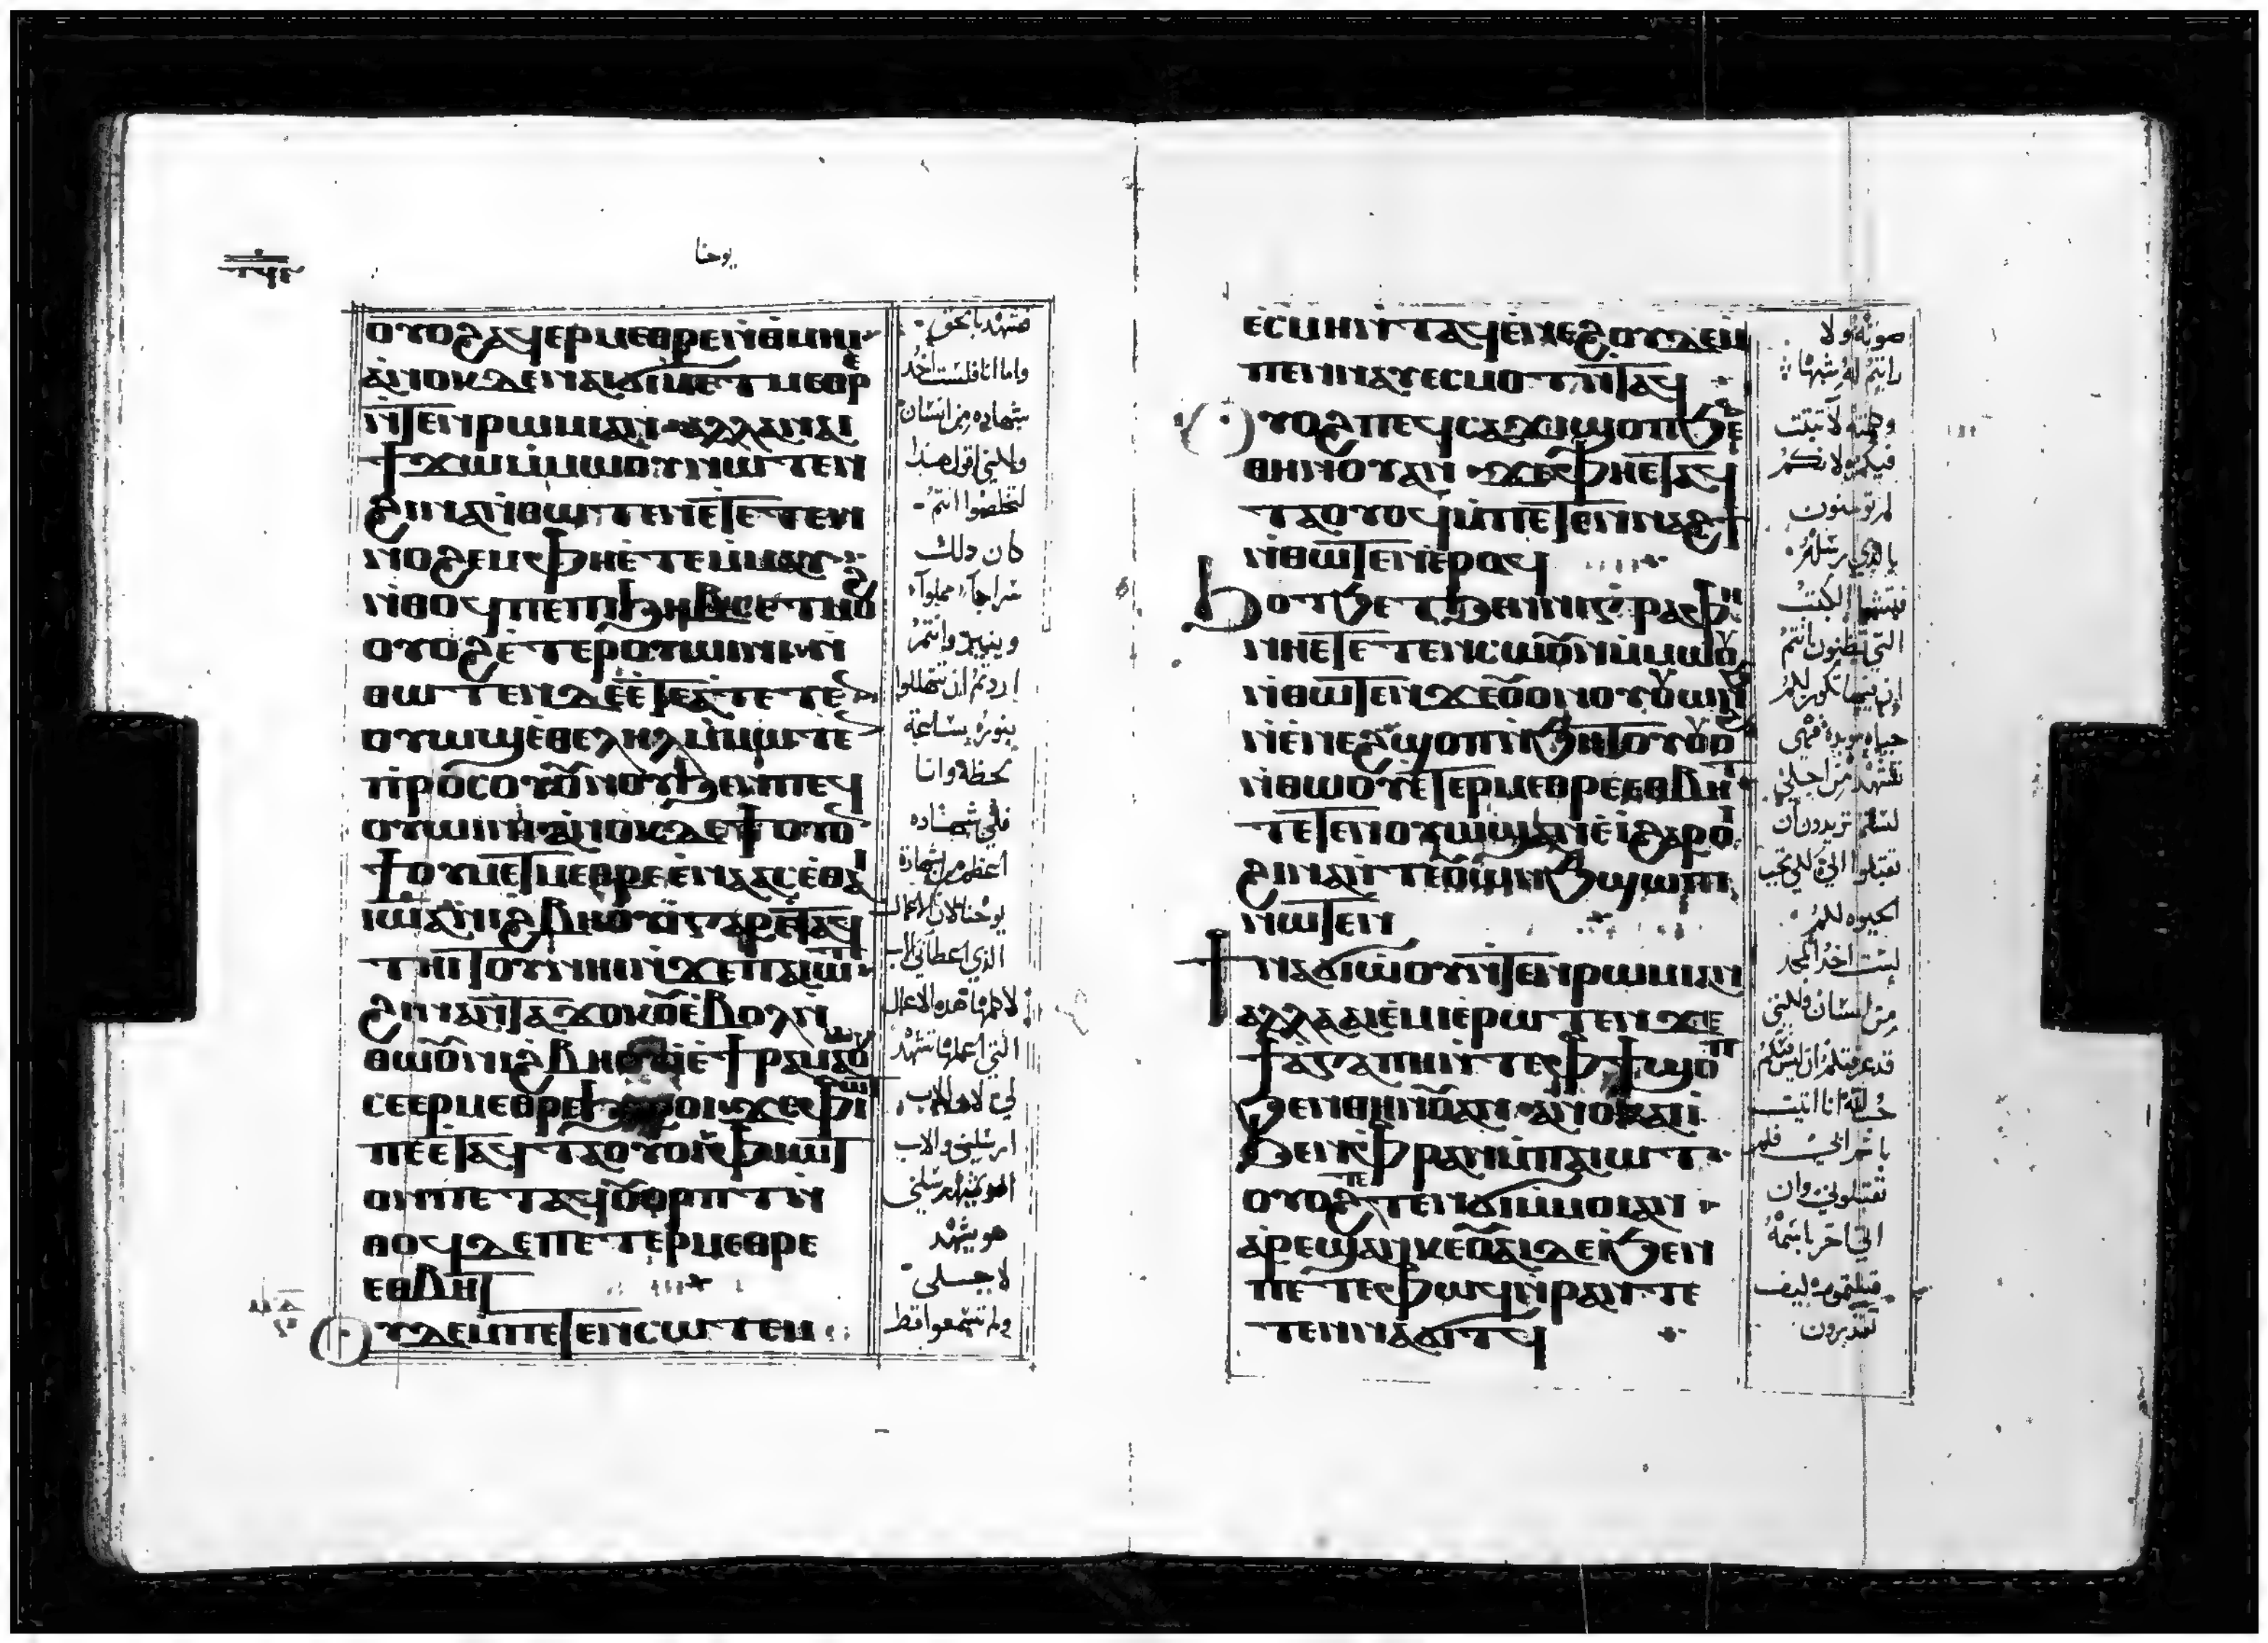 يوحنا
ⲟⲩⲟϩ ⲁϥⲉⲣⲙⲉⲑⲣⲉ ⲛ̀ⲑⲙⲏⲓ
ⲁⲛⲟⲕ ⲇⲉ ⲛⲁⲓϭⲓⲙⲉⲧⲙⲉⲑⲣⲉ
ⲛ̀ⲧⲉⲛⲣⲱⲙⲓ ⲁⲛ ⲁⲗⲗⲁ ⲛⲁⲓ
ϯϫⲱ ⲙ̀ⲙⲱⲟⲩ ⲛⲱⲧⲉⲛ
ϩⲓⲛⲁ ⲛ̀ⲑⲱⲧⲉⲛ ⲉ̀ⲧⲉⲧⲉⲛ
ⲛⲟϩⲉⲙ ⲫⲏ ⲉ̀ⲧⲉⲙⲙⲁⲩ
ⲛ̀ⲑⲟϥ ⲡⲉ ⲡⲓϧⲏⲃⲥ ⲉⲧⲙⲟϩ
ⲟⲩⲟϩ ⲉ̀ⲧⲉⲣⲟⲩⲱⲓⲛⲓ ⲛ̀
ⲑⲱⲧⲉⲛ ⲇⲉ ⲉ̀ⲧⲉⲁⲧⲉⲧⲉⲛ
ⲟⲩⲱϣ ⲉ̀ⲑⲉⲗⲏⲗ ⲙ̀ⲙⲱⲧⲉⲛ
ⲡⲣⲟⲥⲟⲩⲟⲩⲛⲟⲩ ϧⲉⲛ ⲡⲉϥ
ⲟⲩⲱⲓⲛⲓ ⲁⲛⲟⲕ ⲇⲉ ⲟⲩⲟ
ⲛϯ ⲟⲩⲙⲉⲧⲙⲉⲑⲣⲉ ⲉⲛⲁⲁⲥ ⲉ̀ⲑⲁ
ⲓⲱⲁⲛⲛⲏⲥ ⲛⲓϩⲃⲏⲟⲩⲓ ⲅⲁⲣ ⲉⲧⲁϥ
ⲧⲏⲓⲧⲟⲩ ⲛⲏⲓ ⲛ̀ϫⲉ ⲡⲁⲓⲱⲧ
ϩⲓⲛⲁ ⲛ̀ⲧⲁϫⲟⲕⲟⲩ ⲉ̀ⲃⲟⲗ ⲛ̀
ⲑⲱⲟⲩ ⲛⲓϩⲃⲏⲟⲩⲓ ⲉ̀ϯⲣⲁ ⲙ̀ⲙⲱⲟⲩ
ⲥⲉⲉⲣⲙⲉⲑⲣⲉ ϧⲁⲣⲟⲓ ϫⲉ ⲫⲓⲱⲧ
ⲡⲉ ⲉ̀ⲧⲁϥⲧⲁⲟⲩⲟⲓ ⲫⲓⲱⲧ
ⲟⲛ ⲡⲉⲧⲁϥⲟⲩⲟⲣⲡⲧ ⲛ̀
ⲑⲟϥ ⲇⲉ ⲡⲉⲧⲉⲣⲙⲉⲑⲣⲉ
ⲉⲑⲃⲏⲧ
ⲟⲩⲇⲉ ⲙ̀ⲡⲉⲧⲉⲛⲥⲱⲧⲉⲙ
فشهد بالحق
واما انا فلست اخذ
شهاده من انسان
ولكني اقول هذا
لتخلصوا انتم
كان ذلك
سراجا مملوا
وينير وانتم
اردتم ان تتهللوا
بنوره ساعة
لحظة وانا
فلي شهاده
اعظم من شهادة
يوحنا لان الاعمال
الذي اعطاني الاب
لاكملها هذه الاعمال
التي اعملها تشهد
لي لان الاب
ارسلني والاب
الذي ارسلني
هو يشهد
لاجلي
ولم تسمعوا قط
ⲉ̀ⲥⲙⲏ ⲛ̀ⲧⲁϥ ⲉ̀ⲛⲉϩ ⲟⲩⲇⲉ ⲙ̀
ⲡⲉⲛⲛⲁⲩ ⲉⲥⲙⲟⲧ ⲛ̀ⲧⲁϥ
ⲟⲩⲟϩ ⲡⲉϥⲥⲁϫⲓ ϣⲟⲡ ϧⲉⲛ
ⲑⲏⲛⲟⲩ ⲁⲛ ϫⲉ ⲫⲏ ⲉ̀ⲧⲁϥ
ⲧⲁⲟⲩⲟϥ ⲙ̀ⲡⲉⲧⲉⲛⲛⲁϩϯ
ⲛ̀ⲑⲱⲧⲉⲛ ⲉ̀ⲣⲟϥ
ϧⲟⲧϧⲉⲧ ϧⲉⲛ ⲛⲓⲅⲣⲁⲫⲏ
ⲛⲏ ⲉ̀ⲧⲉⲧⲉⲛⲥⲱⲟⲩⲛ ⲙ̀ⲙⲱⲟⲩ
ⲛ̀ⲑⲱⲧⲉⲛ ϫⲉ ⲟⲩⲟⲛ ⲟⲩⲱⲛϧ
ⲛ̀ⲉⲛⲉϩ ϣⲟⲡ ⲛ̀ϧⲏⲧⲟⲩ ⲟⲩⲟϩ
ⲛ̀ⲑⲱⲟⲩ ⲉⲧⲉⲣⲙⲉⲑⲣⲉ ⲉⲑⲃⲏⲧ
ⲧⲉⲧⲉⲛⲟⲩⲱϣ ⲁⲛ ⲉ̀ⲓ̀ ϩⲁⲣⲟⲓ
ϩⲓⲛⲁ ⲛ̀ⲧⲉ ⲟⲩⲱⲛϧ ϣⲱⲡⲓ
ⲛⲱⲧⲉⲛ
ϯⲛⲁϭⲓⲱⲟⲩ ⲛ̀ⲧⲉⲛ ⲣⲱⲙⲓ ⲁⲛ
ⲁⲗⲗⲁ ⲁⲓⲉⲙⲓ ⲉ̀ⲣⲱⲧⲉⲛ ϫⲉ
ϯⲁⲅⲁⲡⲏ ⲛ̀ⲧⲉ ⲫϯ ϣⲟⲡ
ϧⲉⲛ ⲑⲏⲛⲟⲩ ⲁⲛ ⲁⲛⲟⲕ ⲁⲓⲓ̀
ϧⲉⲛ ⲫⲣⲁⲛ ⲙ̀ⲡⲁⲓⲱⲧ
ⲟⲩⲟϩ ⲧⲉⲧⲉⲛϭⲓ ⲙ̀ⲙⲟⲓ ⲁⲛ
ⲁⲣⲉϣⲁⲛ ⲕⲉⲟⲩⲁⲓ ⲇⲉ ⲓ̀ ϧⲉⲛ
ⲡⲉⲧⲉ ⲫⲱϥ ⲛ̀ⲣⲁⲛ ⲧⲉ
ⲧⲉⲛⲛⲁϭⲓⲧϥ
صوته ولا
رايتم له شبها
وكلمته لا تثبت
فيكم ولانكم
لم تومنون
بالذي رسله
فتشوا الكتب
التي تظنون انتم
ان فيها تكون لكم
حياه موبدة فهي
تشهد من اجلي
لستم تريدون ان
تقبلوا الي لكي تجب
الحيوه لكم
لست اخذ المجد
من انسان ولكني
قد عرفتكم ان ليس فيكم
حب الله انا اتيت
باسم ابي فلم
تقبلوني وان
اتي اخر باسمه
قبلتموه كيف
تقدرون